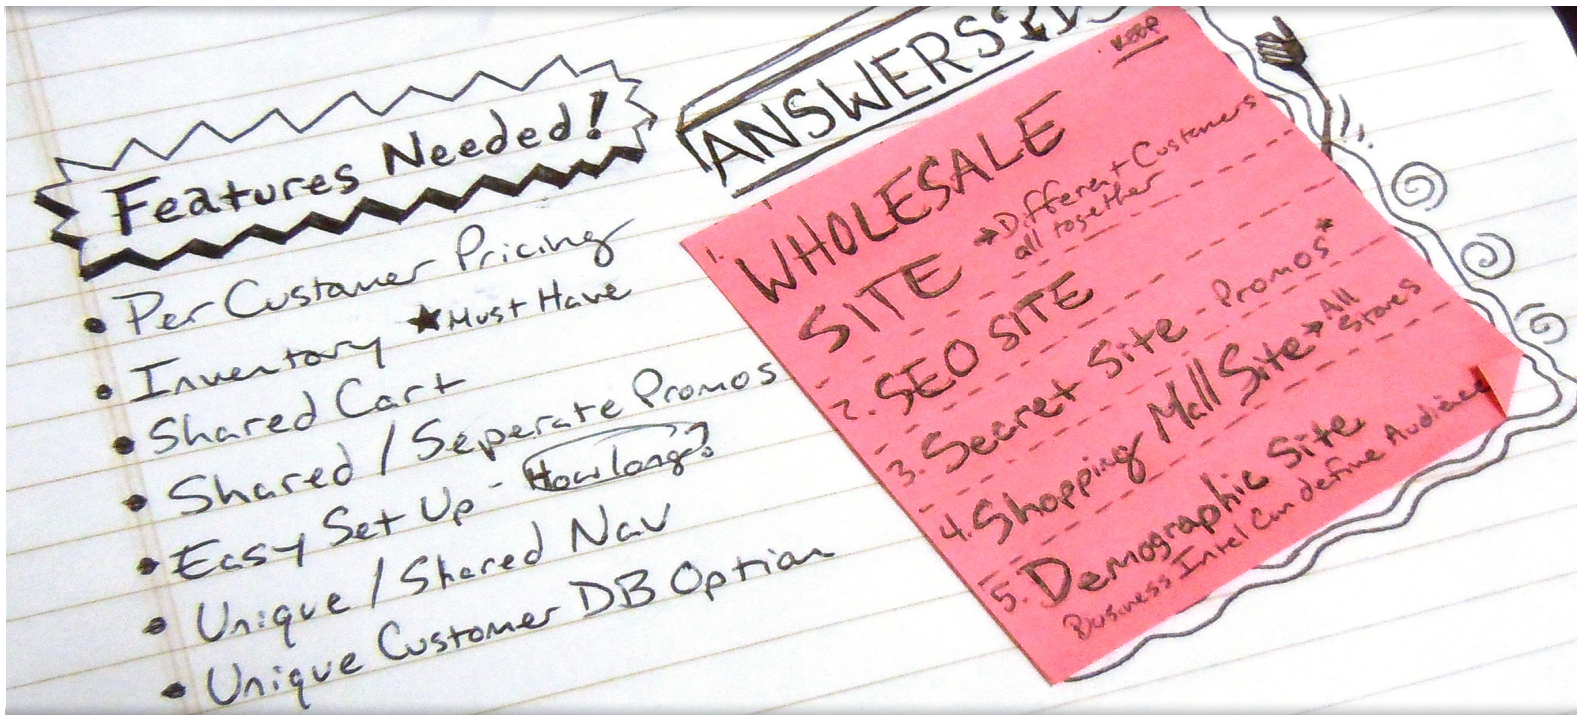 Features Needed!
• Per Customer Pricing
• Inventory ★Must Have
• Shared Cart
• Shared / Seperate Promos
• Easy Set Up - How long?
• Unique / Shared Nav
• Unique Customer DB Option
ANSWERS
KEEP
1. WHOLESALE
SITE → Different Customers
all together
2. SEO SITE
3. Secret Site - Promos*
4. Shopping Mall Site → All
Stores
5. Demographic Site
Business Intel Can define Audience